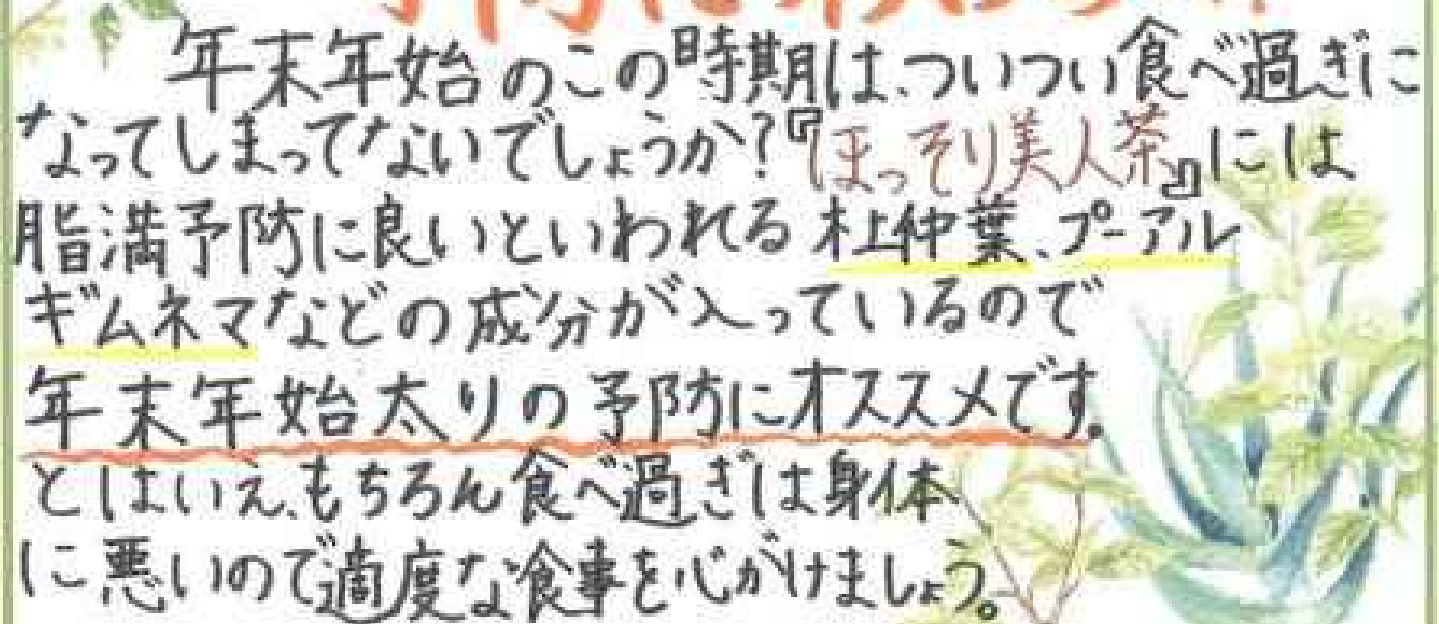 年末年始のこの時期は、ついつい食べ過ぎに
なってしまってないでしょうか?『ほっそり美人茶』には
脂満予防に良いといわれる杜仲葉、プーアル
ギムネマなどの成分が入っているので
年末年始太りの予防にオススメです。
とはいえ、もちろん食べ過ぎは身体
に悪いので適度な食事を心がけましょう。